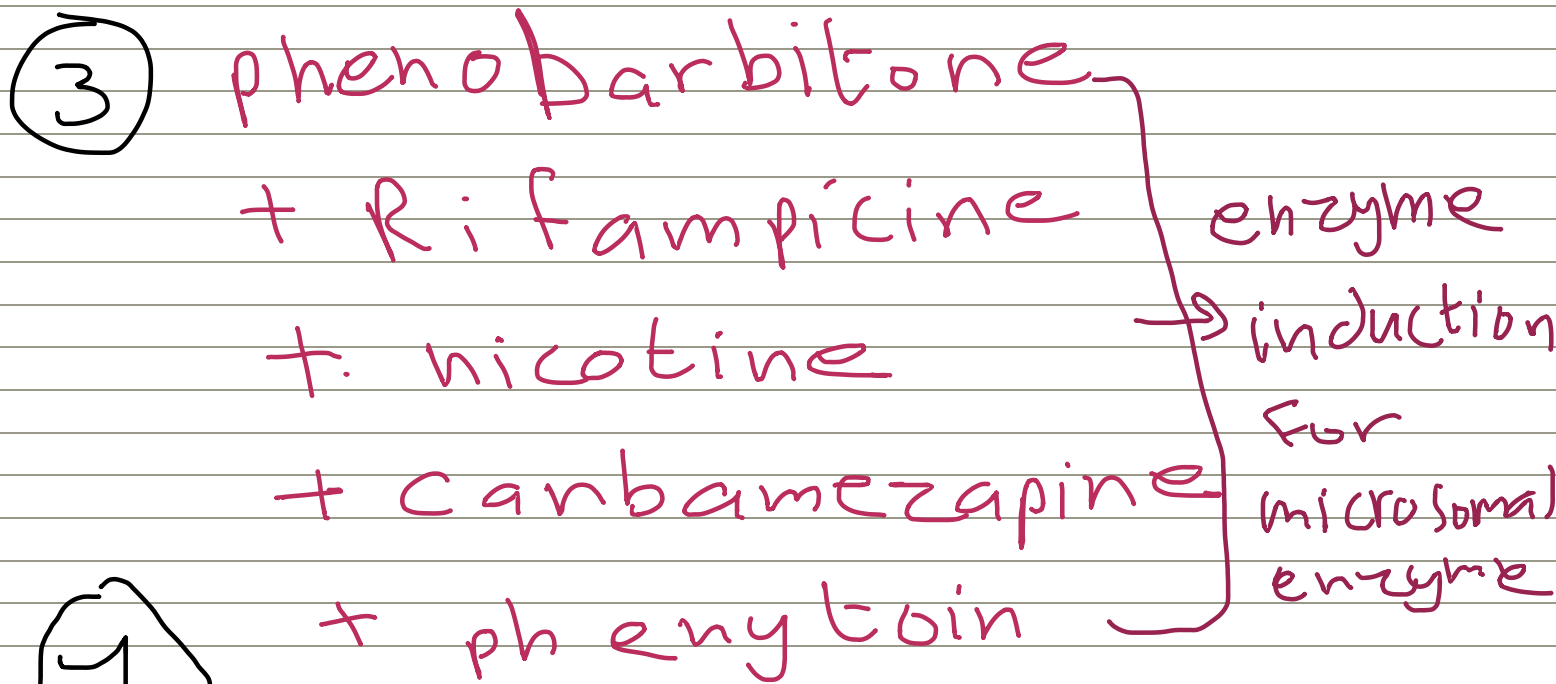 ③ phenobarbitone
+ Rifampicine
+ nicotine
+ carbamezapine
+ phenytoin
enzyme
→ induction
For
microsomal
enzyme
4